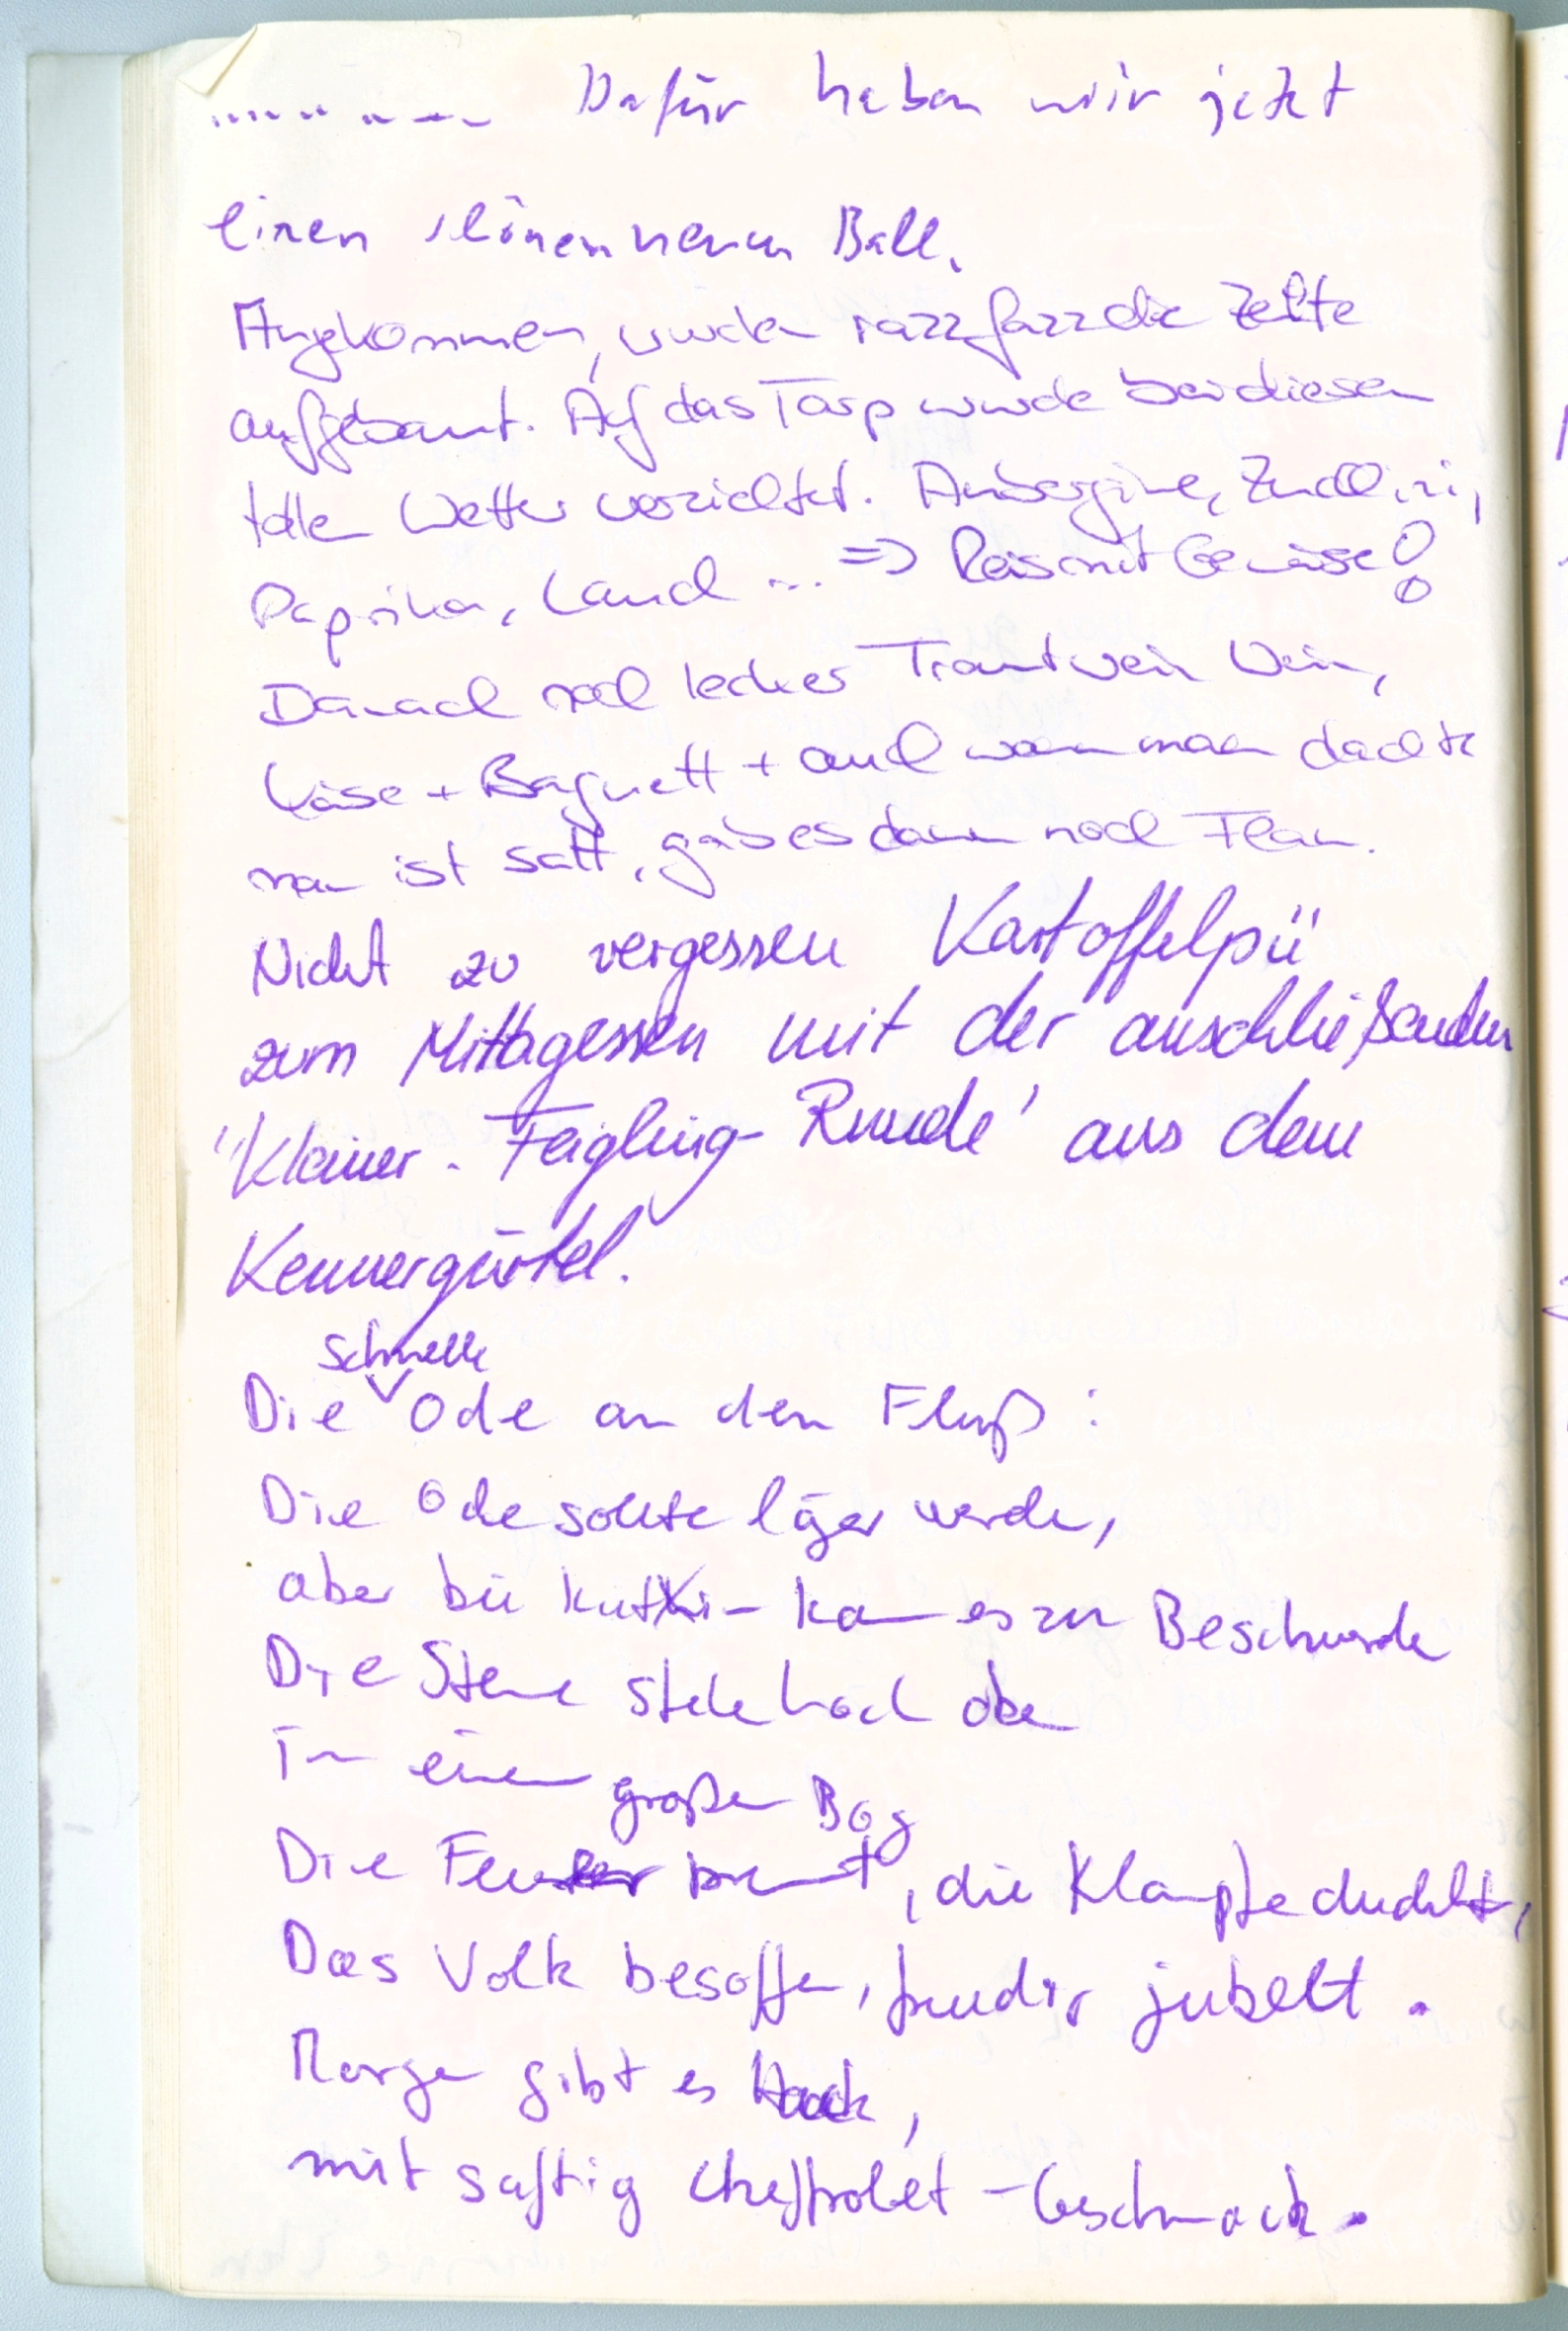 ......... Dafür haben wir jetzt
einen schönen neuen Ball.
Angekommen, wurden razzfazz die Zelte
aufgebaut. Auf das Tarp wurde bei diesem
tollen Wetter verzichtet. Aubergine, Zucchini,
Paprika, Lauch ... => Reis mit Gemüse!
Danach noch lecker Trautwein Wein,
Käse + Baguett + auch wenn man dachte
man ist satt, gab es dann noch Flan.
Nicht zu vergessen Kartoffelpü
zum Mittagessen mit der anschließenden
"Kleiner-Feigling-Runde' aus dem
Kennergürtel.
schnelle
Die Ode an den Fluß:
Die Ode sollte länger werden,
aber bei - kam es zu Beschwerde
Die Sterne stehen hoch oben
In einem großen Bogen
Die Feuer brennt, die Klampfe dudelt,
Das Volk besoffen, freudig jubelt.
Morgen gibt es Hack,
mit saftig Cheffrolet-Geschmack.